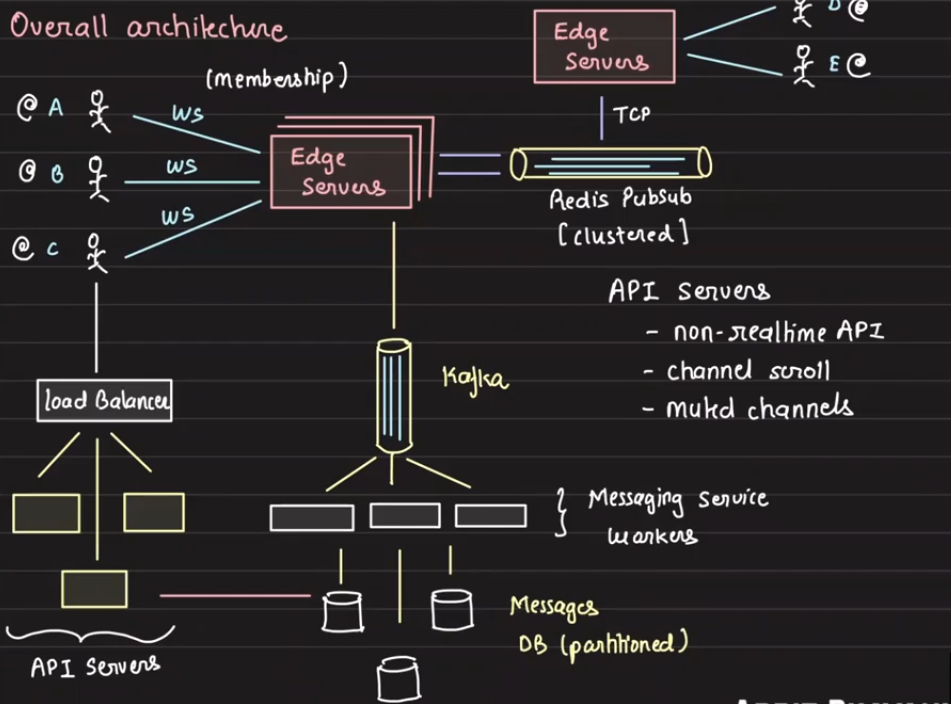 Overall architecture
(membership)
@ A
WS
@ B
WS
@ C
WS
Edge
Servers
Edge
Servers
D @
E @
TCP
Redis PubSub
[clustered]
API servers
- non-realtime API
- channel scroll
- muted channels
Kafka
load Balancer
Messaging service
workers
Messages
DB (partitioned)
API Servers